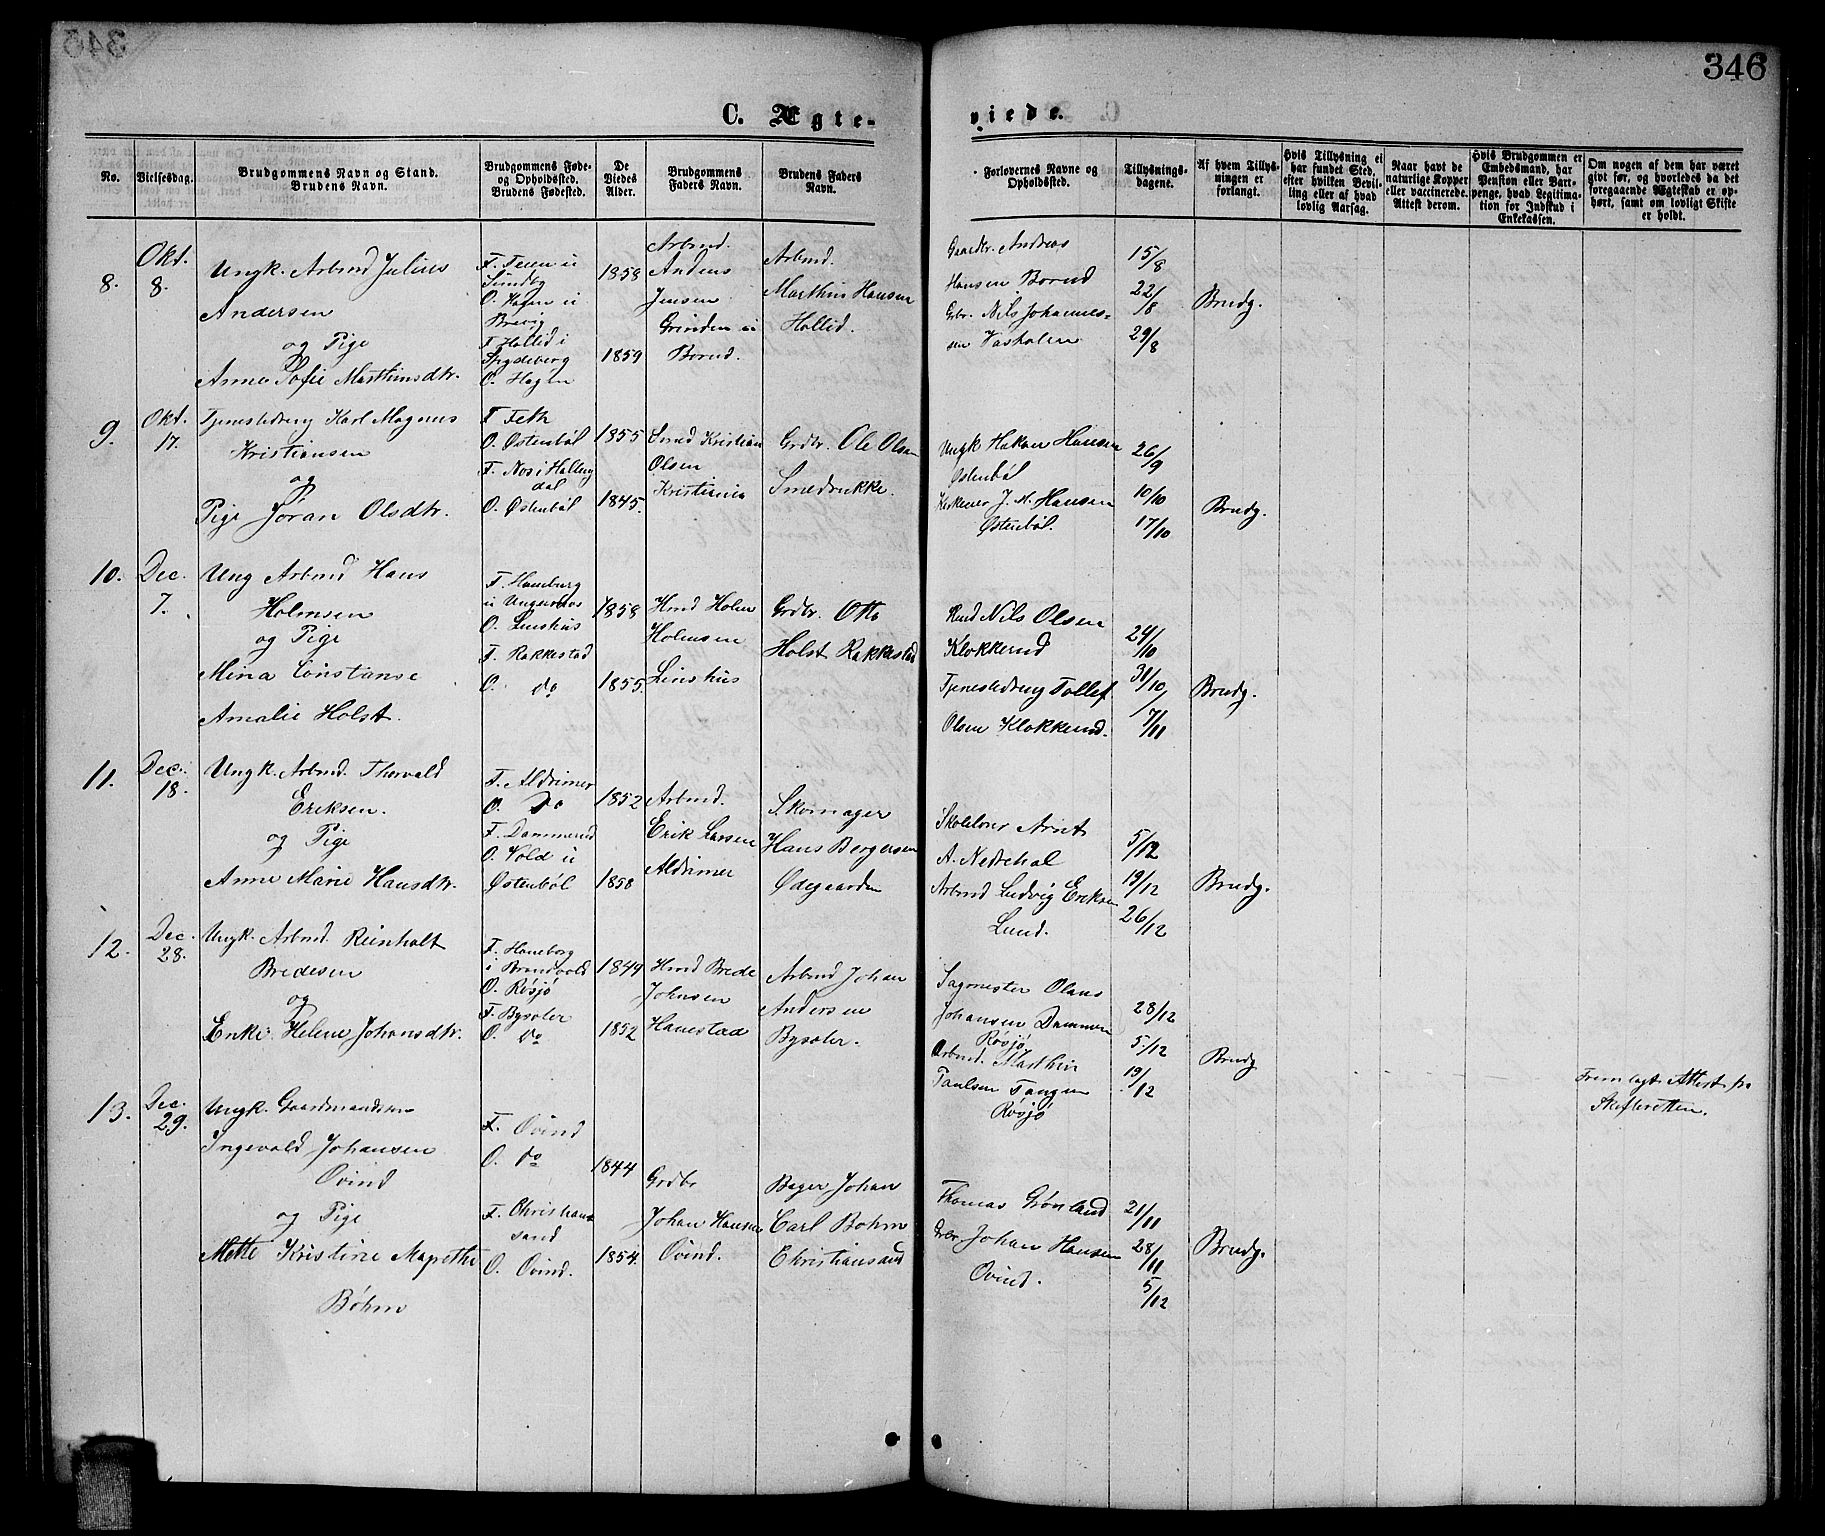 346
C. Ægte-
viede.
No.
Vielsesdag.
Brudgommens Navn og Stand.
Brudens Navn.
Brudgommens Føde-
og Opholdssted.
Brudens Fødested.
De
Viedes
Alder.
Brudgommens
Faders Navn.
Brudens Faders
Navn.
Forlovernes Navne og
Opholdssted.
Tillysnings-
dagene.
Af hvem Tillys-
ningen er
forlangt.
Hvis Tillysning ei
har fundet Sted,
efter hvilken Bevil-
ling eller af hvad
lovlig Aarsag.
Naar havt de
naturlige Kopper
eller vaccinerede.
Attest derom.
Hvis Brudgommen er
Embedsmand, har
Pension eller Vart-
penge, hvad Legitima-
tion for Indskud i
Enkekassen.
Om nogen af dem har været
givt før, og hvorledes da det
foregaaende Ægteskab er op-
hørt, samt om lovligt Skifte
er holdt.
8.
Okt.
8.
Ungk. Arbmd Julius
Andersen
og Pige
Anne Sofie Marthinsdtr.
Sundby
O. Hagen u
Brevig
F. Hollid i
Spydeberg
O. Hagen
1858
1859
Arbmd.
Anders
Jensen
Grinden u
Borud.
Arbmd.
Marthin Hansen
Hollid.
Gaardbr. Andreas
Hansen Borud
Grbr. Nils Johannes-
sen Vasholen
15/8
22/8
29/8
Brudg.
9.
Okt.
17.
Tjenestedreng Karl Magnus
Kristiansen
og
Pige Jøran Olsdtr.
F. Feth
O. Østenbøl
F. Nos i Halling
dal
O. Østenbøl
1855
1845.
Smed Kristian
Olsen
Kristiania
Grdbr. Ole Olsen
Smedrukke.
Ungk. Hakon Hansen
Østenbøl
Kirkener J. M. Hansen
Østenbøl.
26/9
10/10
17/10
Brudg.
10.
Dec.
7.
Ung Arbmd Hans
Holmsen
og Pige
Mina Constanse
Amalie Holst.
F. Haneburg
O. Linshus
F. Rakkestad
O. do
1858
1855.
Hmd Holm
Holmsen
Linshus
Grdbr. Otto
Holst Rakkestad
Hmd Nils Olsen
Klokkerud
Tjenestedreng Tollef
Olsen Klokkerud.
24/10
31/10
7/11
Brudg.
11.
Dec.
18.
Ungk. Arbmd. Thorvald
Eriksen.
og Pige
Anne Marie Hansdtr.
F. Aldrimer
O. Do
F. Dammerud
O. Vold u
Østenbøl
1852
1858
Arbmd.
Erik Larsen
Aldrimer
Skomager
Hans Bergersen
Ødegaarden
Skolelærer Arnt
A. Nedrehal
Arbmd Ludvig Eriksen
Lund.
5/12
19/12
26/12
Brudg.
12.
Dec.
28.
Ungk. Arbmd. Reinholt
Bredesen
og
Enke Helene Johansdtr.
F. Haneborg
i Brandvold
O. Røsjø
F. Bysæter
O. do
1849
1852
Hmd Brede
Johnsen
Hanestad
Arbmd Johan
Andersen
Bysæter.
Sagmester Olaus
Johansen Dammen
Røsjø
Arbmd. Marthin
Paulsen Tangen
Røsjø
28/12
5/12
19/12
Brudg
Fremlagt Attest fra
Skifteretten.
13.
Dec.
29.
Ungk. Gaardmandssøn
Ingevald Johansen
Øvind
og Pige
Mette Kristine Magrethe
Bøhm
F. Øvind
O. do
F. Christians
sand
O. Øvind.
1844
1854.
Grdbr
Johan Hansen
Øvind.
Bager Johan
Carl Bøhm
Christiansand
Thomas Grønland
Grbr. Johan Hansen
Øvind.
21/11
28/11
5/12
Brudg.